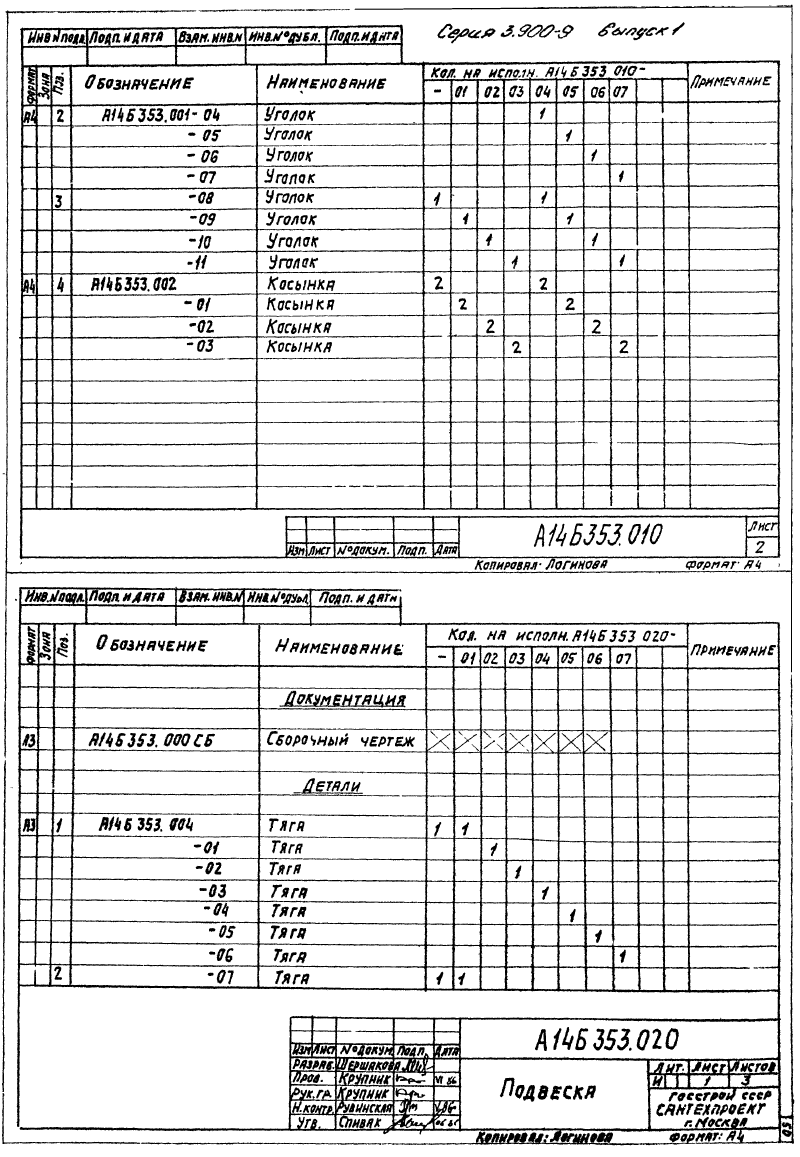 Серия 3.900-9 Выпуск 1
Инв.№подл. Подп. и дата Взам. инв.№ Инв.№дубл. Подп. и дата
Формат Зона Поз. Обозначение Наименование Кол. на исполн. А14Б353.010- Примечание
- 01 02 03 04 05 06 07
А4 2 А14Б353.001-04 Уголок 1
-05 Уголок 1
-06 Уголок 1
-07 Уголок 1
3 -08 Уголок 1 1
-09 Уголок 1 1
-10 Уголок 1 1
-11 Уголок 1 1
А4 4 А14Б353.002 Косынка 2 2
-01 Косынка 2 2
-02 Косынка 2 2
-03 Косынка 2 2
Изм Лист №докум. Подп. Дата
А14Б353.010
Лист
2
Копировал: Логинова Формат: А4
Инв.№подл. Подп. и дата Взам. инв.№ Инв.№дубл. Подп. и дата
Формат Зона Поз. Обозначение Наименование Кол. на исполн. А14Б353.020- Примечание
- 01 02 03 04 05 06 07
Документация
А3 А14Б353.000СБ Сборочный чертеж X X X X X X X
Детали
А3 1 А14Б353.004 Тяга 1 1
-01 Тяга 1
-02 Тяга 1
-03 Тяга 1
-04 Тяга 1
-05 Тяга 1
-06 Тяга 1
2 -07 Тяга 1 1
А14Б353.020
Изм Лист №докум. Подп. Дата
Разраб. Шершакова
Пров. Крупник VI 86
Рук.гр. Крупник
Н.контр. Рувинская
Утв. Спивак
Подвеска
Лит. Лист Листов
И 1 3
Госстрой СССР
Сантехпроект
г. Москва
Копировал: Логинова Формат: А4